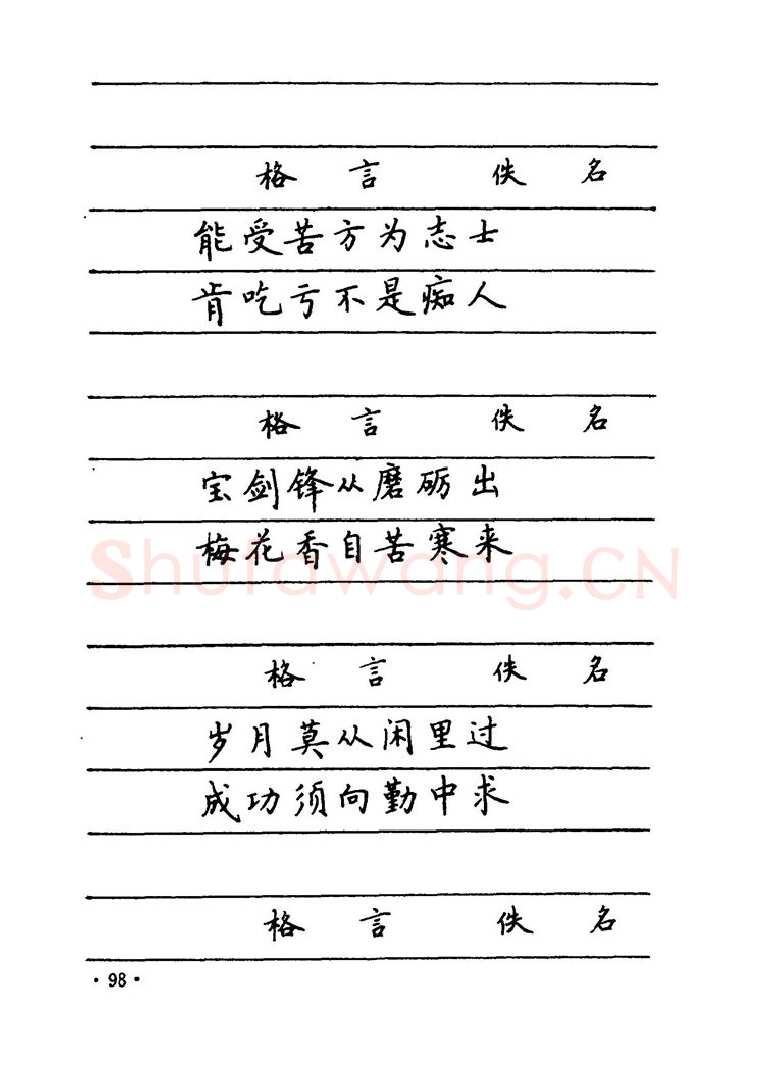 格言 佚名
能受苦方为志士
肯吃亏不是痴人
格言 佚名
宝剑锋从磨砺出
梅花香自苦寒来
Shufawang.CN
格言 佚名
岁月莫从闲里过
成功须向勤中求
格言 佚名
·98·